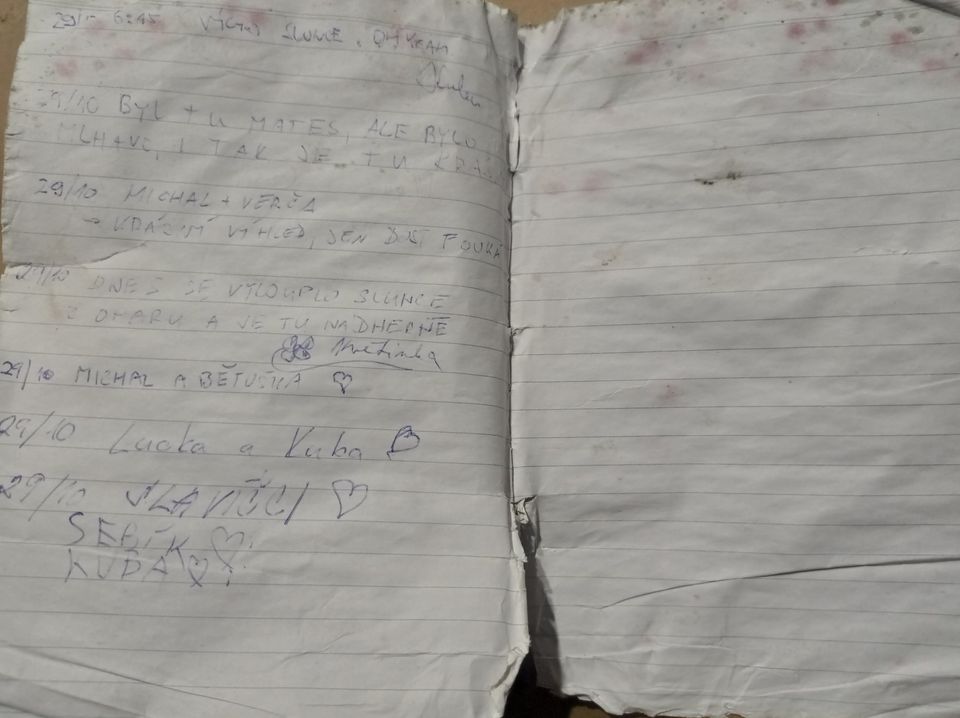 29/10 6:45
29/10 BYL TU MATES, ALE BYLO
MLHAVO, I TAK JE TU
29/10 MICHAL + VERČA
→ KRÁSNÝ VÝHLED, JEN DOST FOUKÁ
29/10 DNES SE VYLOUPLO SLUNCE
Z OPARU A JE TU NÁDHERNĚ
Květinka
29/10 MICHAL A BĚTUŠKA ♡
29/10 Lucka a Kuba ♡
29/10 SLAVÍČCI ♡
SEBÍK ♡
KUBA ♡